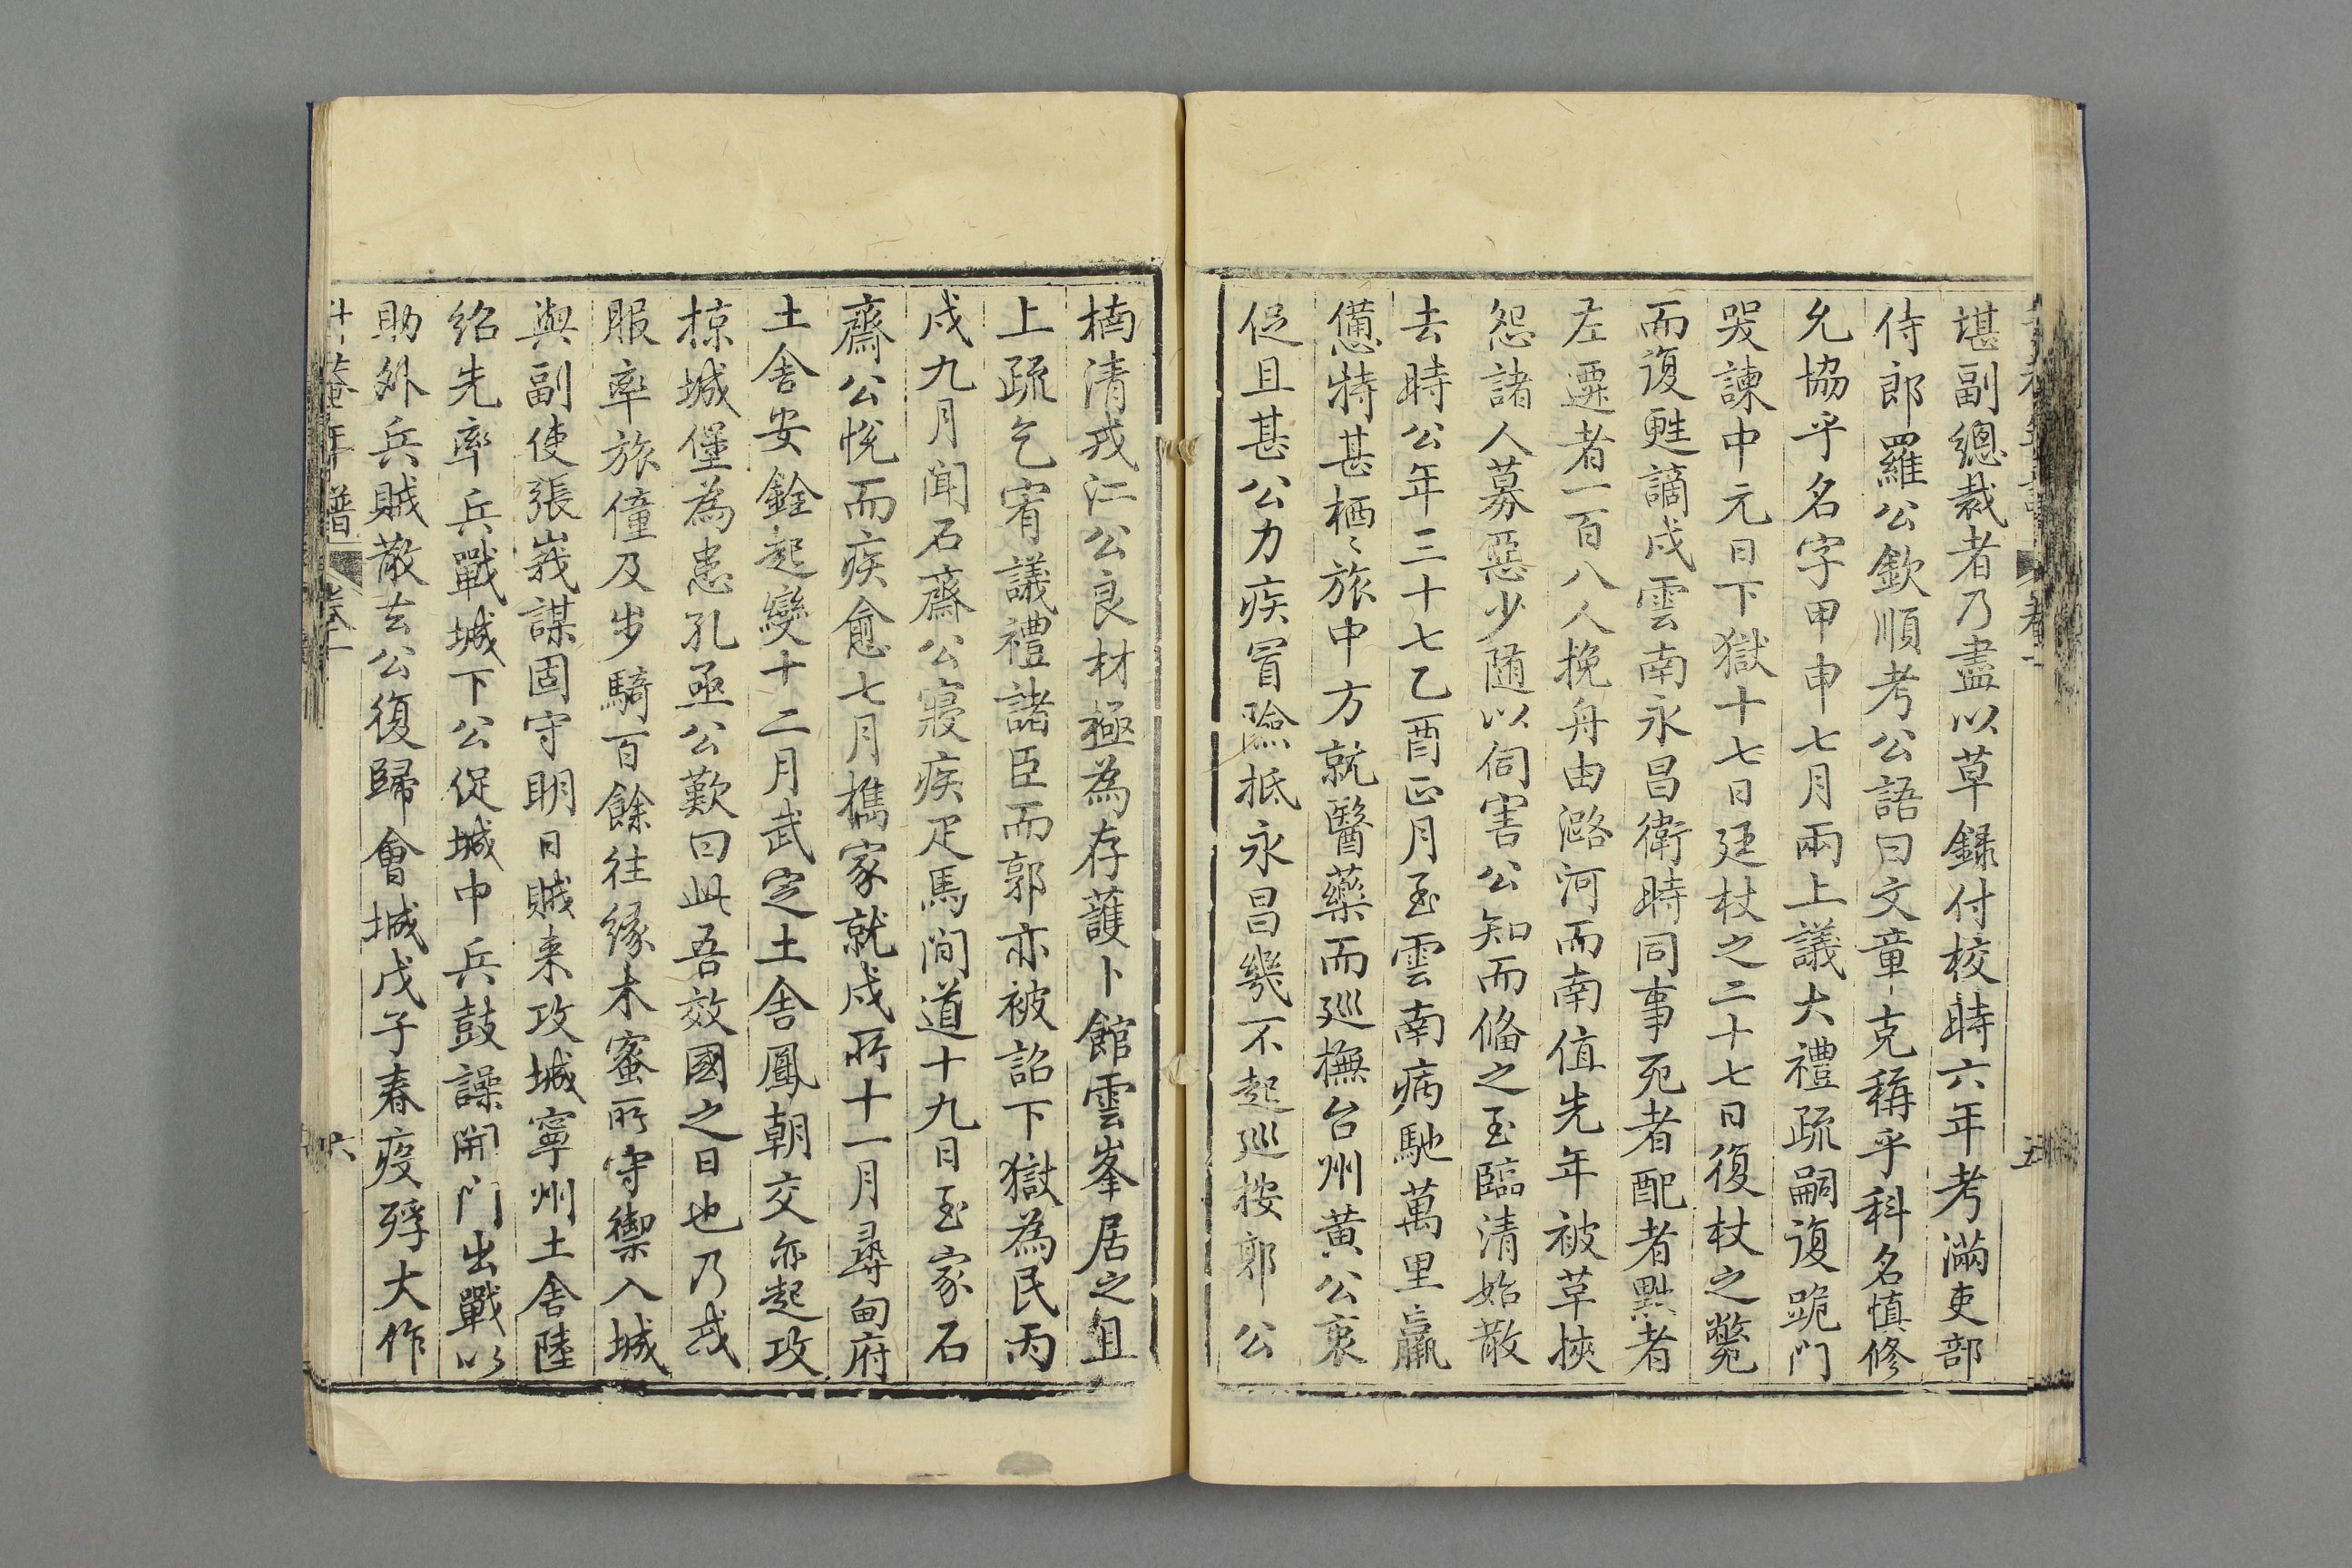 堪副總裁者乃盡以草録付校時六年考滿吏部
侍郎羅公欽順考公語曰文章克稱乎科名慎修
允協乎名字甲申七月兩上議大禮疏嗣復跪門
哭諫中元日下獄十七日廷杖之二十七日復杖之斃
而復甦謫戍雲南永昌衛時同事死者配者黜者
左遷者一百八人挽舟由潞河而南值先年被革挾
怨諸人募惡少随以伺害公知而俻之至臨清始散
去時公年三十七乙酉正月至雲南病馳萬里羸
憊特甚栖〻旅中方就醫藥而巡撫台州黃公衷
促且甚公力疾冒險抵永昌幾不起巡按郭公
楠清戎江公良材極為存護卜館雲峯居之且
上疏乞宥議禮諸臣而郭亦被詔下獄為民丙
戍九月聞石齋公寢疾疋馬間道十九日至家石
齋公悅而疾愈七月攜家就戍所十一月尋甸府
土舍安銓起變十二月武定土舍鳳朝文亦起攻
掠城堡為患孔亟公歎曰此吾效國之日也乃戎
服率旅僮及步騎百餘往緣木蜜所守禦入城
與副使張峩謀固守明日賊来攻城寧州土舍陸
紹先率兵戰城下公促城中兵鼓譟開門出戰以
助外兵賊散去公復歸會城戊子春疫殍大作
升菴年譜 卷一 六